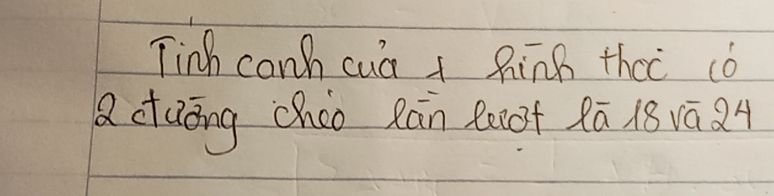 Tính cạnh của 1 hình thoi có
2 đường chéo lần lượt là 18 và 24